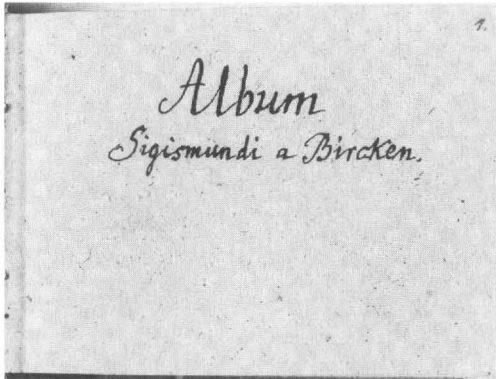 1.
Album
Sigismundi a Bircken.